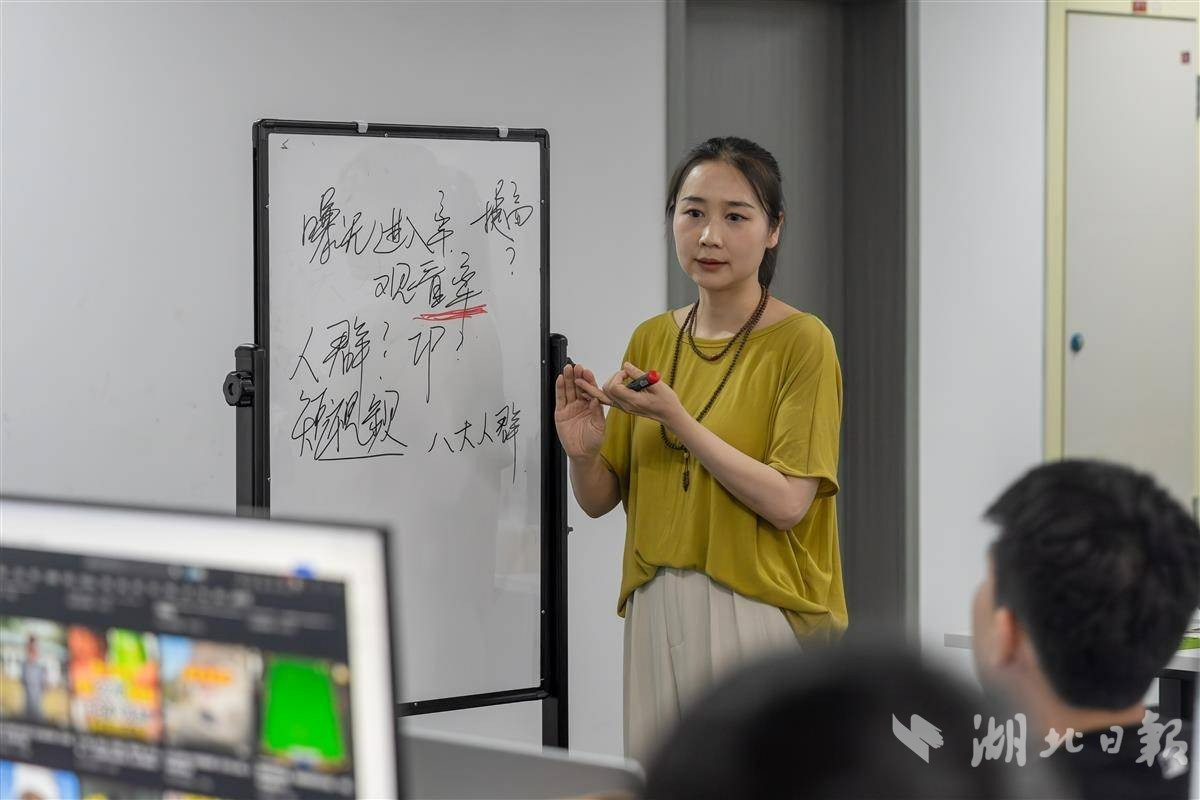 曝光进入率 提高
?
观看率
人群? ?
短视频 八大人群
湖北日报